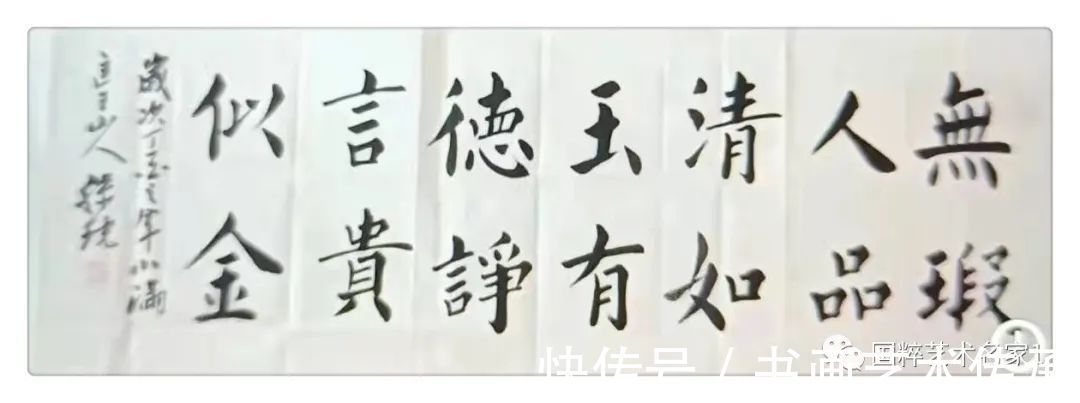 無瑕
人品
清如
玉有
德諍
言貴
似金
歲次丁亥之年小滿
山人
国粹艺术名家
快传号 / 书画艺术传